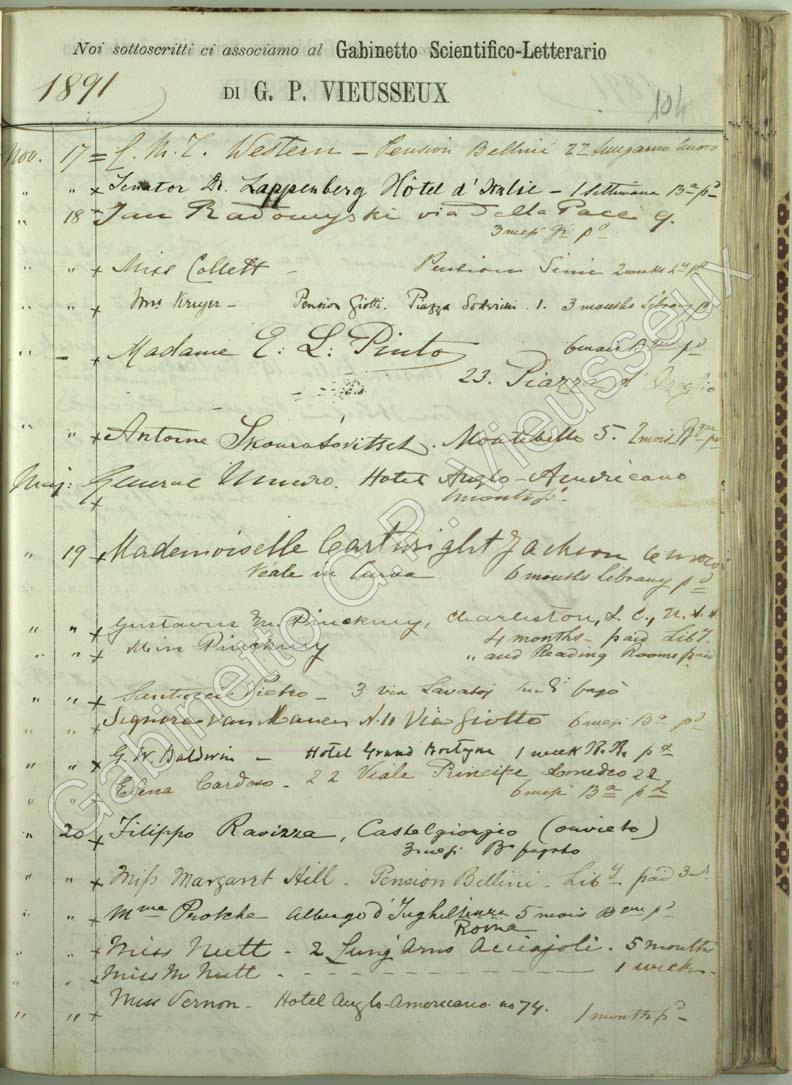 Noi sottoscritti ci associamo al Gabinetto Scientifico-Letterario
1891
DI G. P. VIEUSSEUX
104
Nov. 17 = Western - Pension Bellini 22 Lungarno
" " x Senator Dr. Lappenberg Hôtel d'Italie - 1 settimana Bª pd
" 18 Jan Radomyski via della Pace 9.
3 mesi pd
" " x Miss Collett - Pension 2 months pd
" " x Mrs Kruyer - Pension Giotti. Piazza Soderini. 1. 3 months Library pd
" - x Madame E: L: Pinto 6 mois pd
23. Piazza d'Azeglio
" " x Antoine Montebello 5. 2 mois
Maj: General Munro. Hotel Anglo-Americano
x 1 month pd
" 19 x Mademoiselle Cartwright Jackson
Viale in Curva 6 months Library pd
" " x Gustavus M. Pinckney, Charleston, S. C., U. S. A
" " x Miss Pinckney 4 months - paid Liby.
" and Reading Rooms paid
" " x Pietro - 3 via
" " x Signora van Manen N. 10 Via Giotto 6 mesi Bª pd
" " x G. W. Baldwin - Hotel Grand Bretagne 1 week R. R. pd
" " Elena Cardoso - 22 Viale Principe Amedeo 22,
6 mesi Bª pd
" 20 x Filippo Ravizza, Castelgiorgio (Orvieto)
3 mesi Bª pagato
" " x Miss Margaret Hill - Pension Bellini - Liby paid 3
" " x Mme Protche Albergo d'Inghilterra 5 mois pd
Roma
" " x Miss Nutt - 2 Lung'Arno Acciajoli. 5 months
" " x Miss M Nutt - - - - - - - - 1 week -
" " x Miss Vernon - Hotel Anglo-Americano no 74.
1 month pd -
Gabinetto G.P. Vieusseux